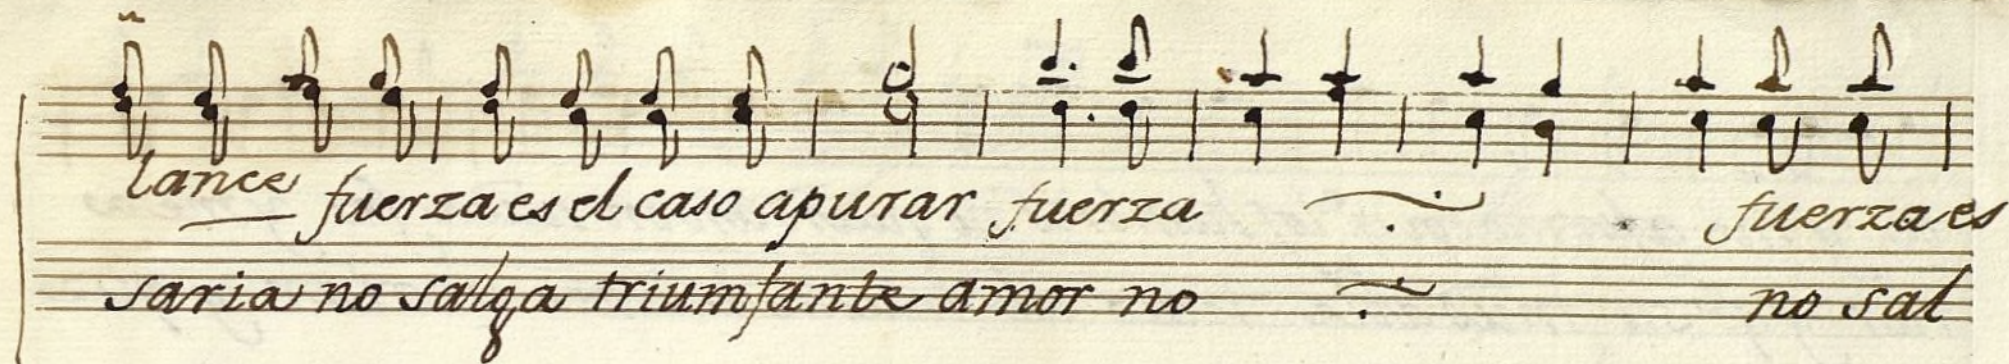 lance fuerza es el caso apurar fuerza fuerza es
saria no salga triumfante amor no no sal